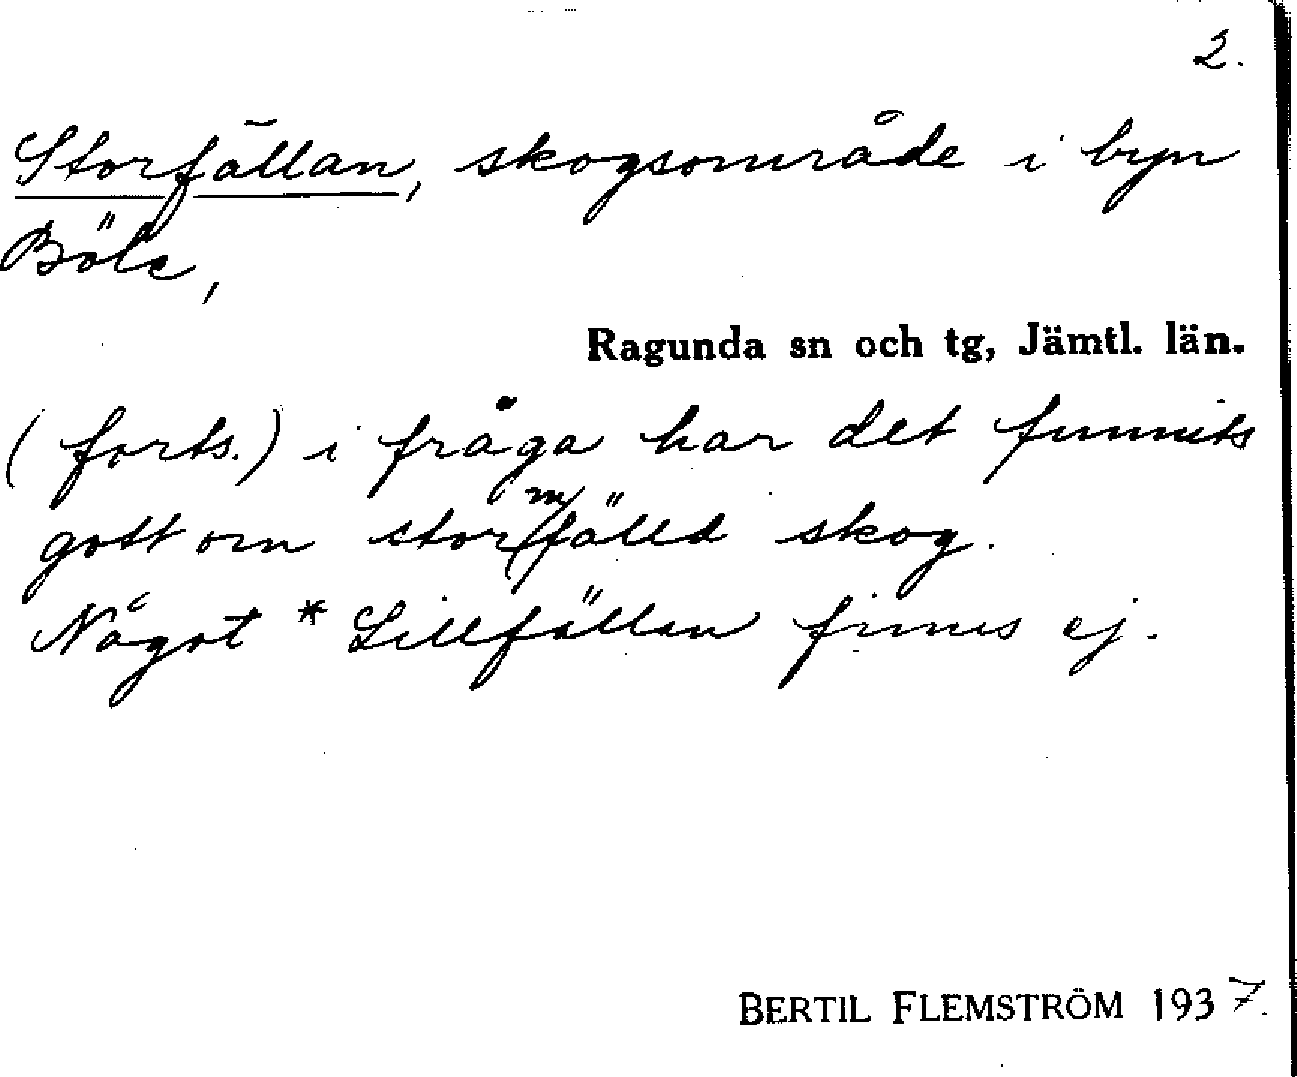 2.
Storfällan, skogsområde i byn
Böle,
Ragunda sn och tg, Jämtl. län.
(forts.) i fråga har det funnits
gott om stormfälld skog.
Något * Lillfällan finns ej.
BERTIL FLEMSTRÖM 1937.